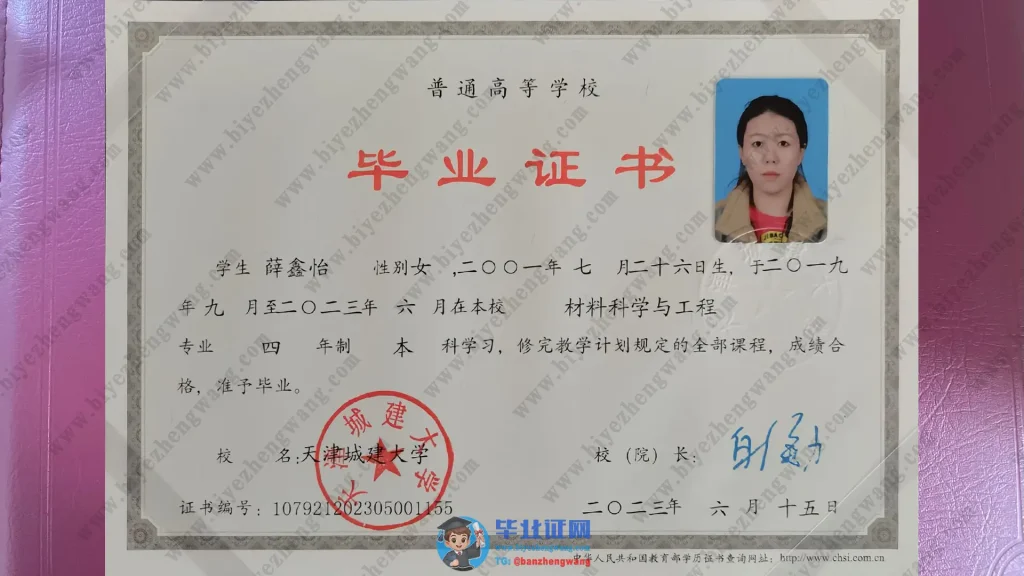 普通高等学校
毕业证书
学生 薛鑫怡 性别女 ,二〇〇一年 七 月二十六日生，于二〇一九
年九 月至二〇二三年 六 月在本校 材料科学与工程
专业 四 年制 本 科学习，修完教学计划规定的全部课程，成绩合
格，准予毕业。
天津城建大学
校 名:天津城建大学
校（院）长:
证书编号：107921202305001155
二〇二三年 六 月 十五日
毕业证网
TG: @banzhengwang
中华人民共和国教育部学历证书查询网址：http://www.chsi.com.cn
www.biyezhengwang.com